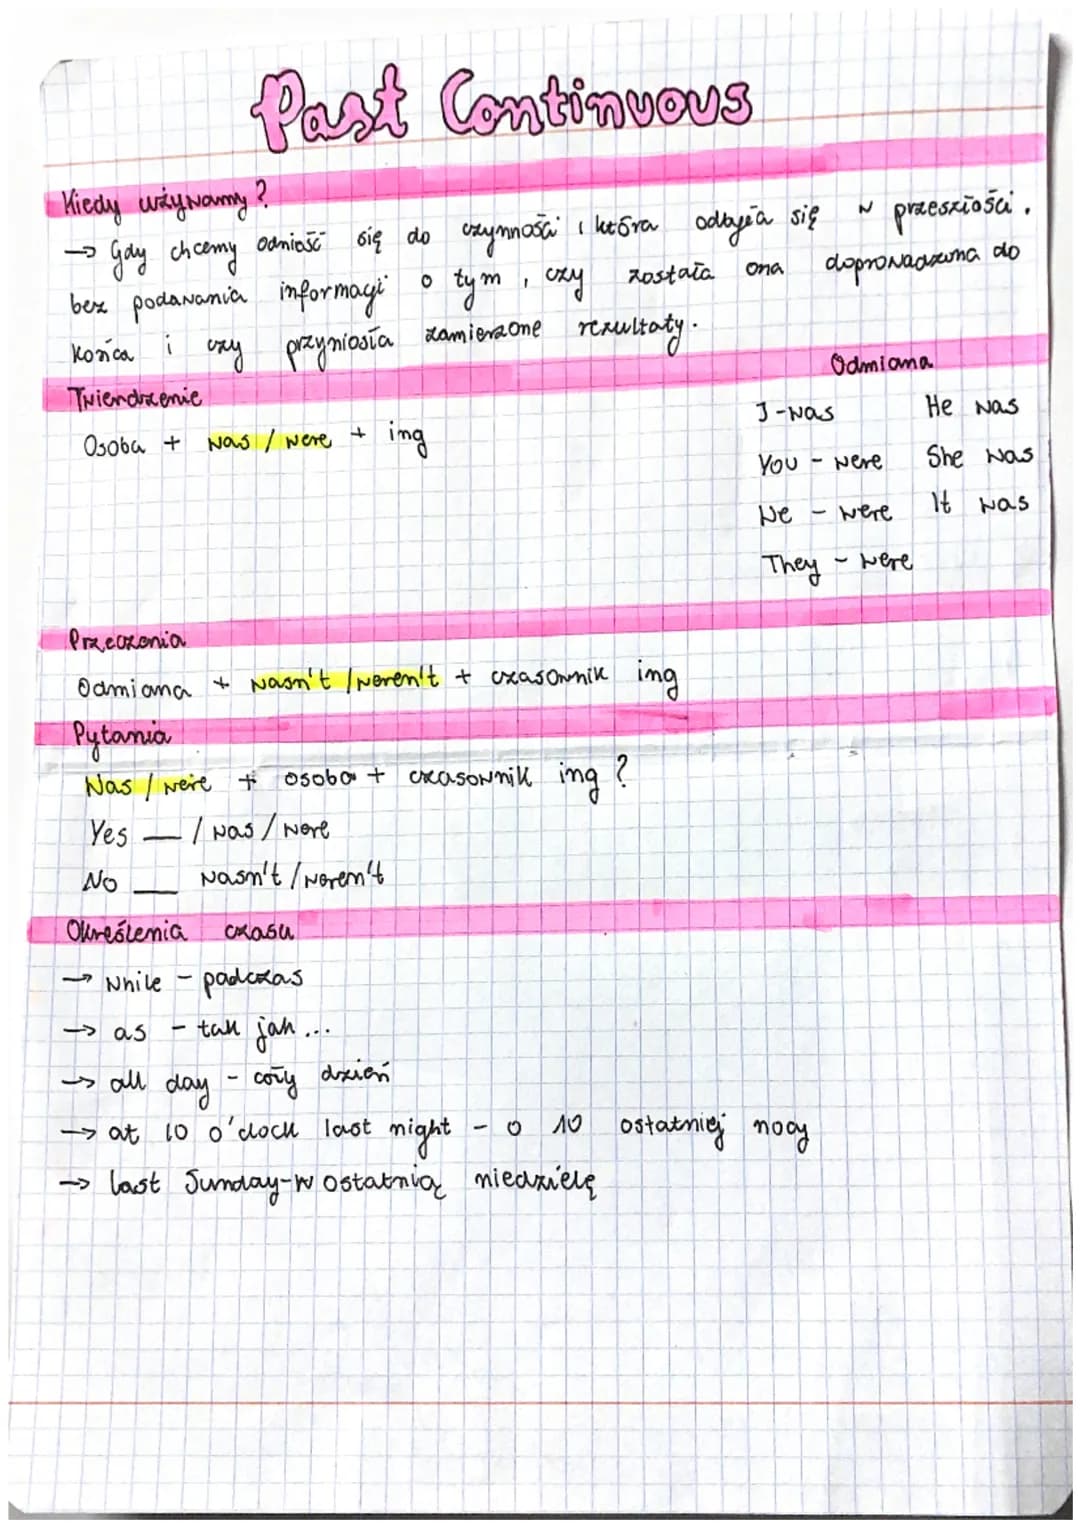 Past Continuous
Kiedy używamy?
→ Gdy chcemy odnieść się do czynności, która odbyła się w przeszłości.
bez podawania informacji o tym, czy została ona doprowadzona do
końca i czy przyniosła zamierzone rezultaty.
Twierdzenie
Osoba + was / were + ing
Odmiana
I - was He was
You - were She was
We - were It was
They - were
Przeczenia
Odmiana + wasn't / weren't + czasownik ing
Pytania
Was / were + osoba + czasownik ing ?
Yes __ / was / were
No __ wasn't / weren't
Określenia czasu
→ while - padczas
→ as - tak jak ...
→ all day - cały dzień
→ at 10 o'clock last night - o 10 ostatniej nocy
→ last Sunday - w ostatnią niedzielę